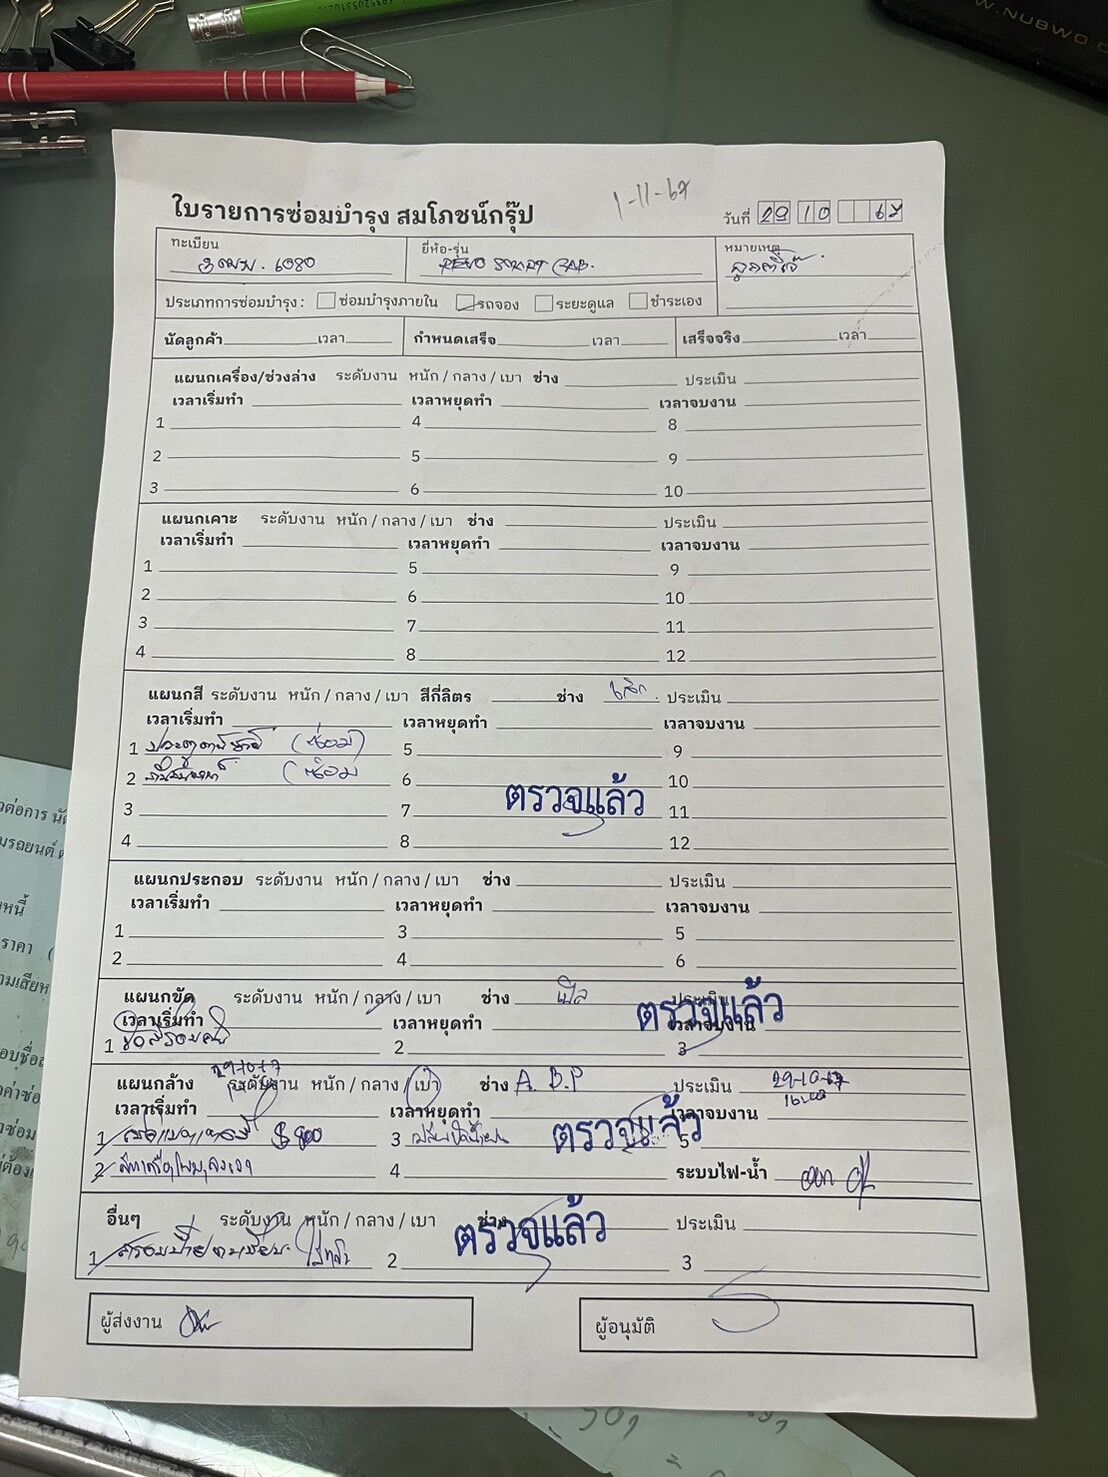 W.NUBWO.C
1-11-67
ใบรายการซ่อมบำรุง สมโภชน์กรุ๊ป
วันที่ 29 10 67
ทะเบียน
6080
ยี่ห้อ-รุ่น
REVO SMART CAB.
หมายเหตุ
ประเภทการซ่อมบำรุง : ซ่อมบำรุงภายใน รถจอง ระยะดูแล ชำระเอง
นัดลูกค้า เวลา กำหนดเสร็จ เวลา เสร็จจริง เวลา
แผนกเครื่อง/ช่วงล่าง ระดับงาน หนัก / กลาง / เบา ช่าง ประเมิน
เวลาเริ่มทำ เวลาหยุดทำ เวลาจบงาน
1 4 8
2 5 9
3 6 10
แผนกเคาะ ระดับงาน หนัก / กลาง / เบา ช่าง ประเมิน
เวลาเริ่มทำ เวลาหยุดทำ เวลาจบงาน
1 5 9
2 6 10
3 7 11
4 8 12
แผนกสี ระดับงาน หนัก / กลาง / เบา สีกี่ลิตร ช่าง ประเมิน
เวลาเริ่มทำ เวลาหยุดทำ เวลาจบงาน
1 (ซ่อม) 5 9
2 (ซ่อม 6 10
ตรวจแล้ว
3 7 11
4 8 12
แผนกประกอบ ระดับงาน หนัก / กลาง / เบา ช่าง ประเมิน
เวลาเริ่มทำ เวลาหยุดทำ เวลาจบงาน
1 3 5
2 4 6
แผนกขัด ระดับงาน หนัก / กลาง / เบา ช่าง ประเมิน
เวลาเริ่มทำ เวลาหยุดทำ เวลาจบงาน
ตรวจแล้ว
1 ขัดสีรอบคัน 2 3
แผนกล้าง ระดับงาน หนัก / กลาง / เบา ช่าง A.B.P ประเมิน 29-10-67
เวลาเริ่มทำ เวลาหยุดทำ เวลาจบงาน
ตรวจแล้ว
1 3 5
2 4 ระบบไฟ-น้ำ
อื่นๆ ระดับงาน หนัก / กลาง / เบา ช่าง ประเมิน
ตรวจแล้ว
1 2 3
ผู้ส่งงาน
ผู้อนุมัติ